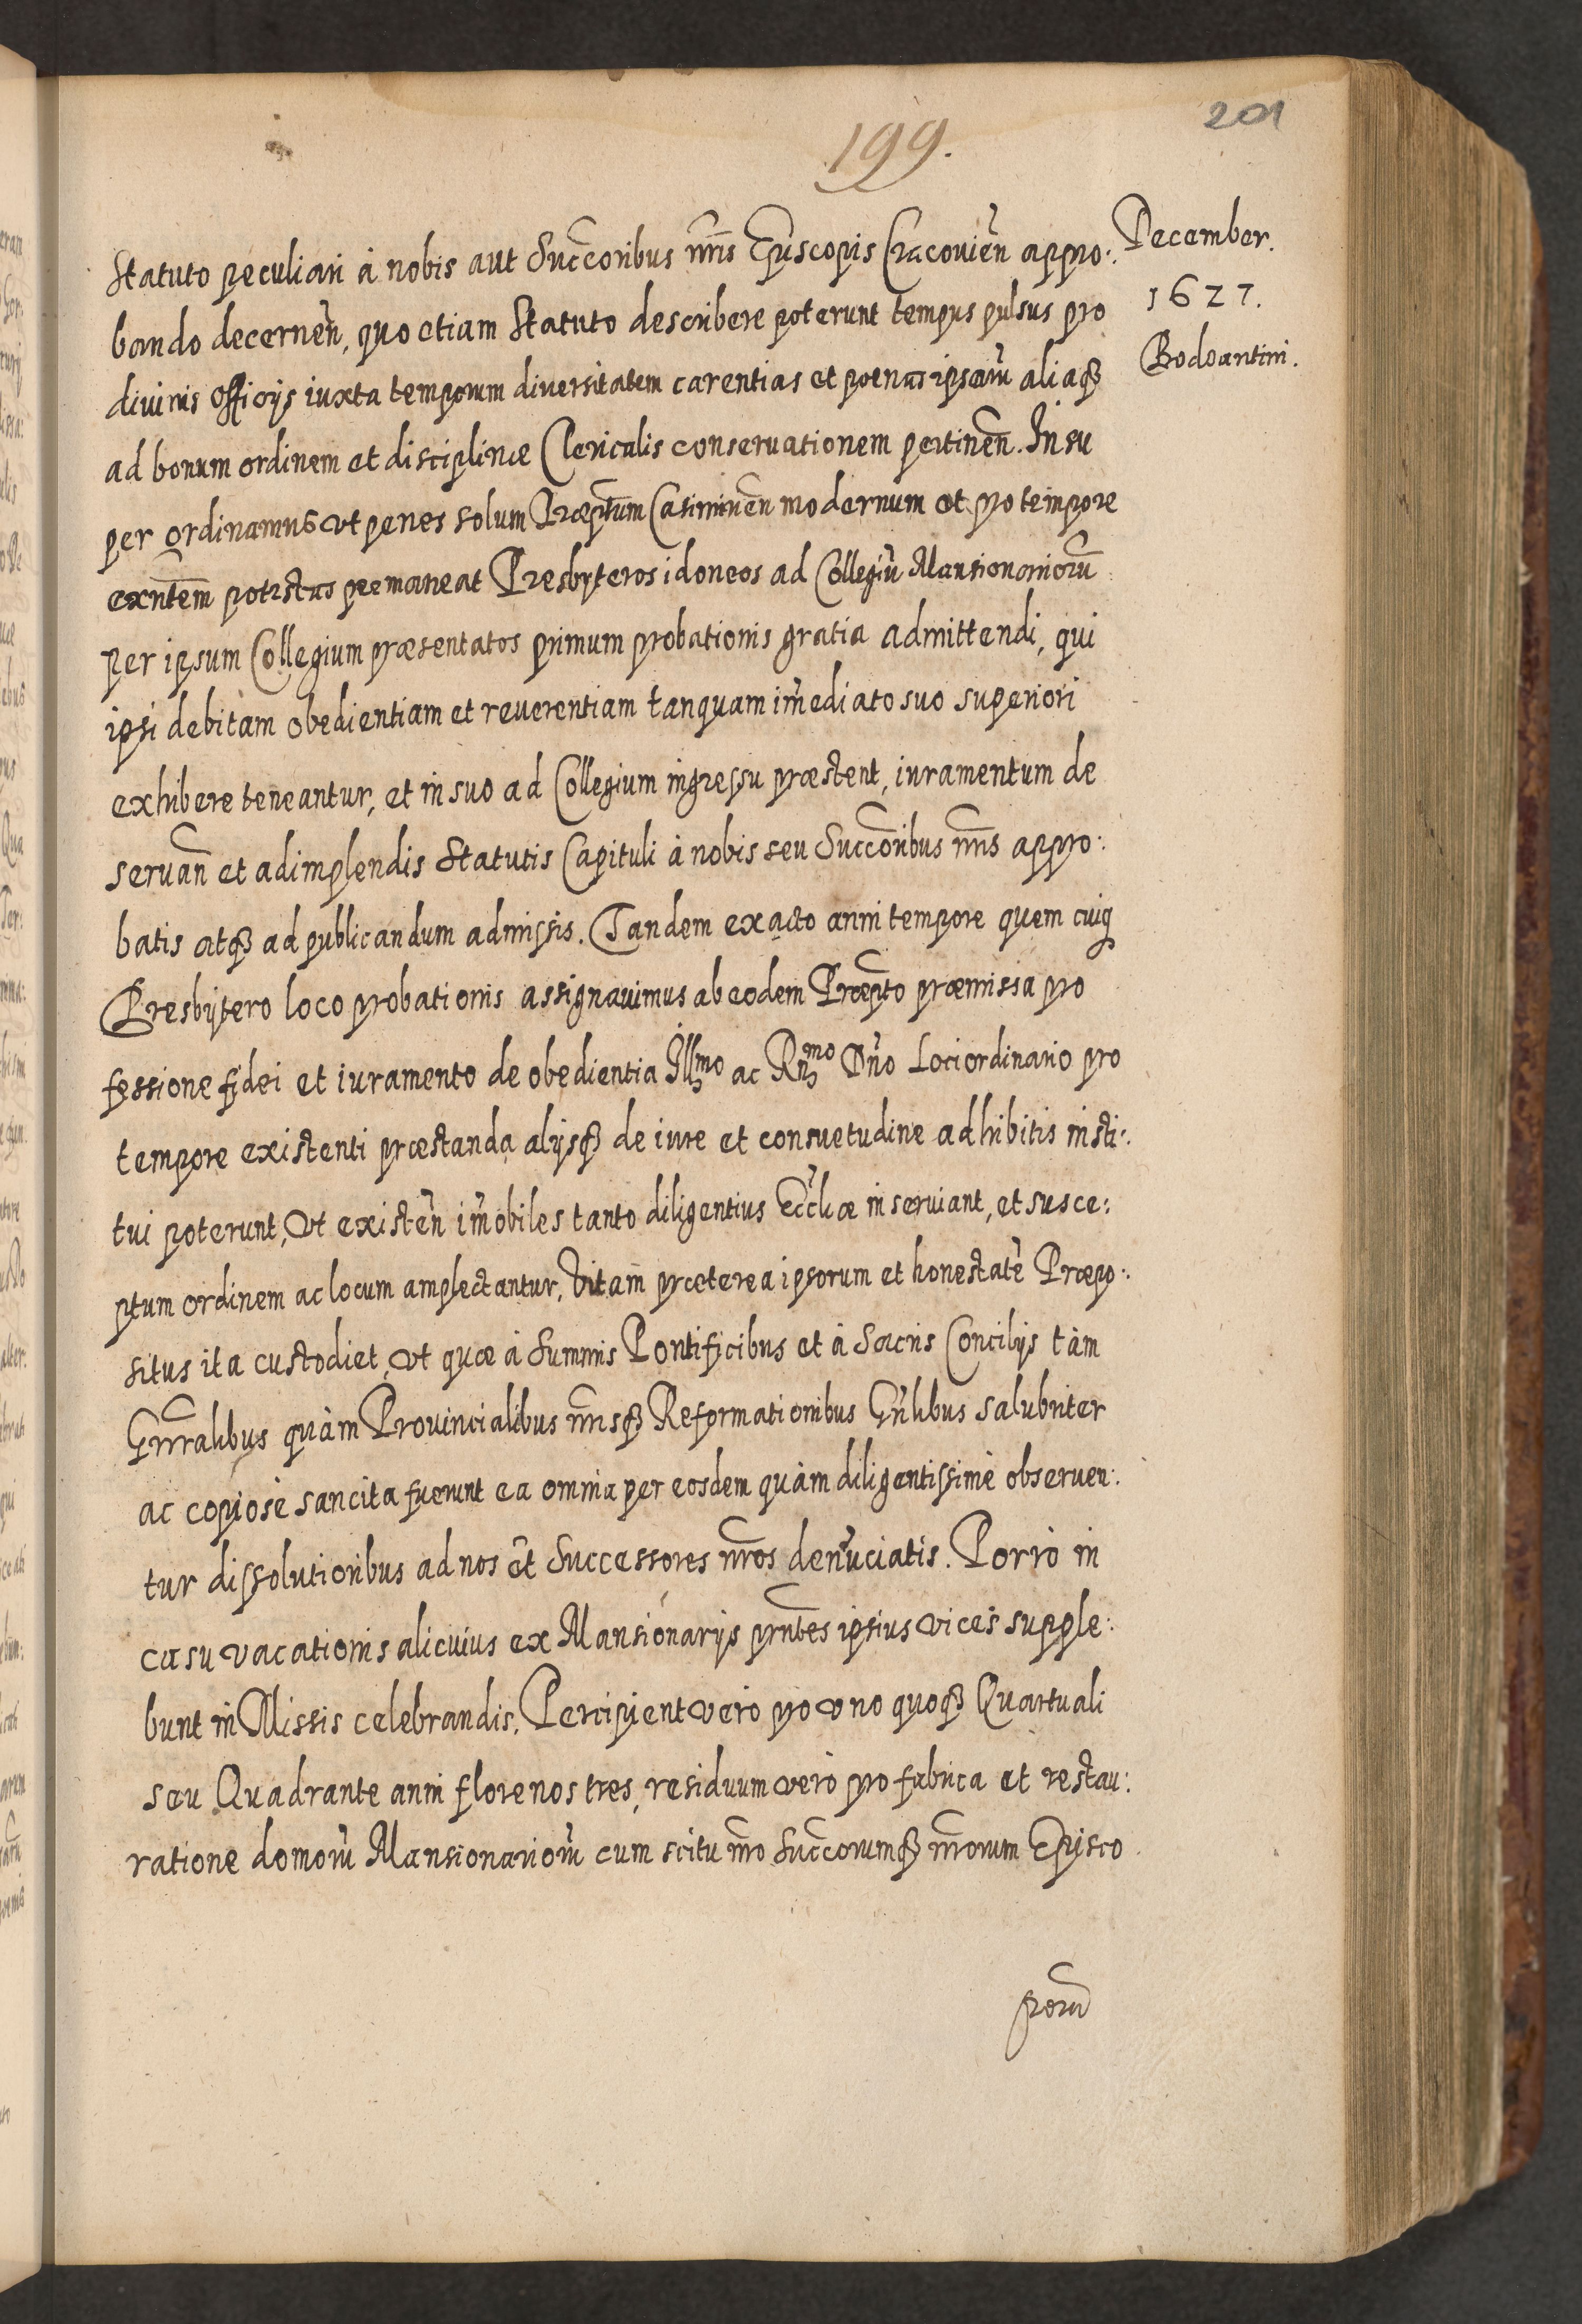 201
199.
December.
1627.
Bodzantini.
Statuto peculiari à nobis aut Succ̃oribus nr̃is Ep̃iscopis Cracouień appro:
bando decerneñ, quo etiam Statuto describere poterunt tempus pulsus pro
diuinis officijs iuxta temporum diuersitatem carentias et poenas ipsarũ aliaq₃
ad bonum ordinem et disciplinæ Clericalis conseruationem pertineñ. Insu
per ordinamus vt penes solum Præp̃tum Casimireñ modernum et pro tempore
exñtem potestas permaneat Presbyteros idoneos ad Collegiũ Mansionariorũ
per ipsum Collegium præsentatos primum probationis gratia admittendi, qui
ipsi debitam obedientiam et reuerentiam tanquam im̃ediato suo superiori
exhibere teneantur, et in suo ad Collegium ingressu præstent, iuramentum de
seruañ et adimplendis Statutis Capituli à nobis seu Succ̃oribus nr̃is appro:
batis atq₃ ad publicandum admissis. Tandem exacto anni tempore quem cuiq
Presbytero loco probationis assignauimus ab eodem Præp̃to præmissa pro
fessione fidei et iuramento de obedientia Illmo ac Rñmo Dño Loci ordinario pro
tempore existenti præstanda alijsq₃ de iure et consuetudine adhibitis insti:
tui poterunt, Vt existeñ im̃obiles tanto diligentius Ecc̃liæ inseruiant, et susce:
ptum ordinem ac locum amplectantur, Vitam præterea ipsorum et honestatẽ Præpo:
situs ita custodiet, vt quæ à Summis Pontificibus et à Sacris Concilijs tàm
Gñralibus quàm Prouincialibus nr̃isq₃ Reformationibus Gñlibus salubriter
ac copiosè sancita fuerunt ea omnia per eosdem quàm diligentissimè obseruen:
tur dissolutioribus ad nos et Successores nr̃os denũciatis. Porrò in
casu vacationis alicuius ex Mansionarijs pñtes ipsius vices supple:
bunt in Missis celebrandis, Percipient verò pro vno quoq₃ Quartuali
seu Quadrante anni florenos tres, residuum verò pro fabrica et restau:
ratione domorũ Mansionariorũ cum scitu nr̃o Succ̃orumq₃ nr̃orum Episco
porũ